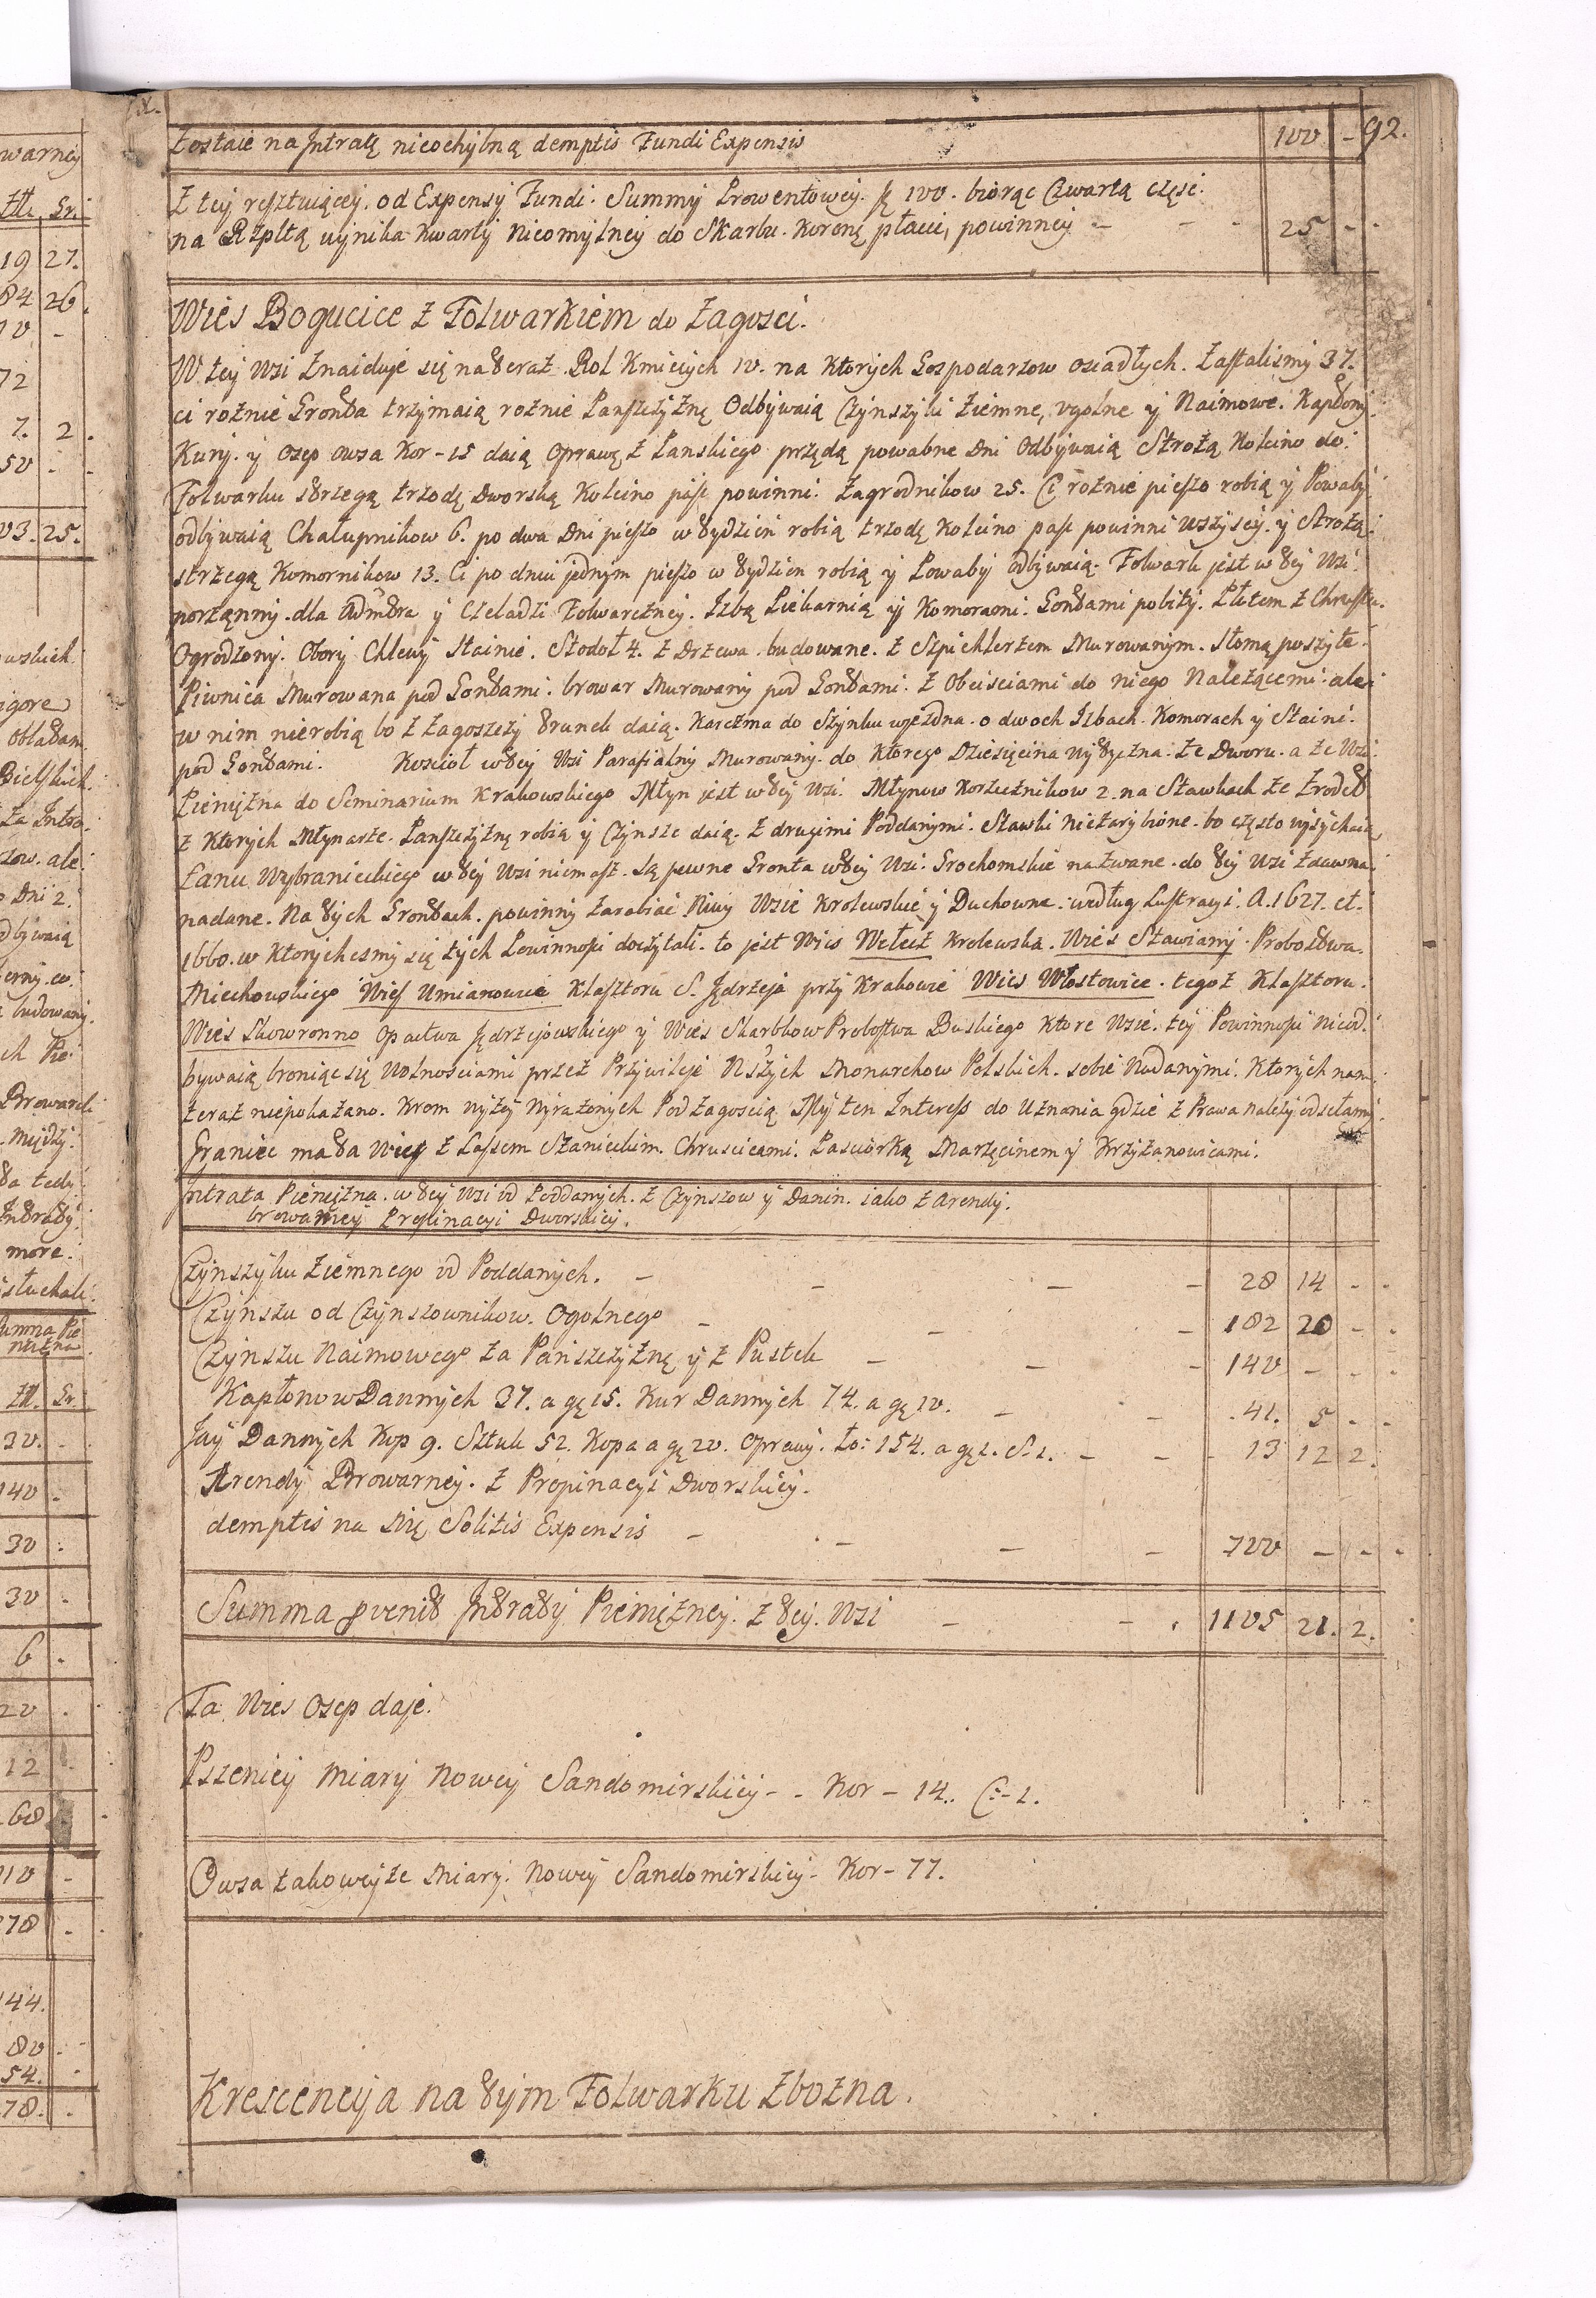 92.
Zostaie na Jntratę nieochybną demptis Fundi Expensis 100 -
Z tey resztuiącey. od Expensy Fundi. Summy Prowentowey. fł 100. biorąc Czwartą część.
na Rzpltą wynika Kwarty nieomylney do Skarbu. Koronę płacić, powinney - - - 25 - -
Wieś Bogucice z Folwarkiem do Zagości.
W tey Wsi znaiduje się na teraz Rol Kmiecych 10. na Ktorych Gospodarzow osiadłych. Zastalismy 37.
ci rożnie Gronta trzymaią rożnie Panszczyznę Odbywaią Czynszyki Ziemne, ogolne y Naimowe. Kapłony.
Kury. y osep owsa Kor-15 daią Oprawę z Panskiego przędą powabne Dni Odbywaią Strożą Koleino do.
Folwarku strzegą trzodę Dworską Koleino paść powinni. Zagrodnikow 25. Ci rożnie pieszo robią y Powaby
odbywaią Chałupnikow 6. po dwa Dni pieszo w tydzień robią trzodę Koleino paść powinni wszyscy. y Strożą
strzegą Komornikow 13. Ci po dniu jednym pieszo w tydzień robią y Powaby odbywaią. Folwark jest w tey Wsi.
porządny. dla Adm̃tra y Czeladzi Folwarczney. Jzbą Piekarnią y Komorami. Gontami pobity. Płotem z Chrustu.
Ogrodzony. Obory Chlewy stainie. Stodoł 4. z Drzewa budowane. z Szpichlerzem Murowanym. słomą poszyte.
Piwnica Murowana pod Gontami. browar Murowany pod Gontami. z Obeisciami do niego Należącemi. ale
w nim nie robią bo z Zagoszczy trunek daią. Karczma do Szynku wjezdna o dwoch Jzbach. Komorach y Staini.
pod Gontami. Kościoł w tey Wsi Parafialny Murowany. do Ktorego Dziesięcina wytyczna ze Dworu. a ze Wsi
Pieniężna do Seminarium Krakowskiego Młyn jest w tey Wsi. Młynow Korzecznikow 2. na Stawkach ze Zrodeł
z Ktorych Młynarze. Panszczyznę robią y Czynsze daią. z drugimi Poddanymi. Stawki niezarybione. bo często wysychaią
Łanu Wybranieckiego w tey Wsi niemasz. Są pewne Gronta w tey Wsi. Grochomskie nazwane. do tey Wsi zdawna
nadane. Na tych Grontach. powinny zarabiać Niwy Wsie Krolewskie y Duchowne. według Lustracyi. A. 1627. et.
1660. w Ktorych esmy się tych Powinności doczytali. to jest Wieś Wełcz Krolewska. Wieś Sławiany. Probostwa.
Miechowskiego Wieś Umianowice Klasztoru S. Jędrzeja przy Krakowie Wieś Włostowice. tegoż Klasztoru.
Wieś Skowronno Opactwa Jędrzejowskiego y Wieś Skarbkow Probostwa Buskiego Ktore Wsie. tey Powinności nieod.
bywaią broniąc się Wolnosciami przez Przywileje Nszych Monarchow Polskich. sobie Nadanymi. Ktorych nam
teraz niepokazano. Krom wyżey wyrażonych Pod Zagoscią My ten Interess do Uznania gdzie z Prawa należy odsełamy
Granice ma ta Wieś z Lassem Szanieckim. Chruscicami. Pasciorką Marzęcinem y Krzyżanowicami.
Jntrata Pieniężna. w tey Wsi od Poddanych. z Czynszow y Danin. iako z Arendy.
browarney Propinacyi Dworskiey.
Czynszyku Ziemnego od Poddanych. - - - - 28 14 - -
Czynszu od Czynszownikow. Ogolnego - - - 182 20 - -
Czynszu Naimowego za Panszczyznę y z Pustek - - - 140 - - -
Kapłonow Dannych 37. a gę 15. Kur Dannych 74. a gę 10. - - 41. 5 - -
Jay Dannych Kop 9. Sztuk 52. Kopa a gę 20. Oprawy. Ło: 154. a gę 1. S. 1. - - - 13 12 2.
Arendy Browarney. z Propinacyi Dworskiey.
demptis na Nię Solitis Expensis - - - - 700 - - -
Summa Evenit Jntraty Pieniężney. z tey. Wsi - - . 1105 21. 2.
Ta Wieś Osep daje.
Pszenicy Miary Nowey Sandomirskiey - - Kor - 14. C: - 2.
Owsa takoweyże Miary. Nowey Sandomirskiey - Kor - 77.
Krescencyja na tym Folwarku Zbożna.